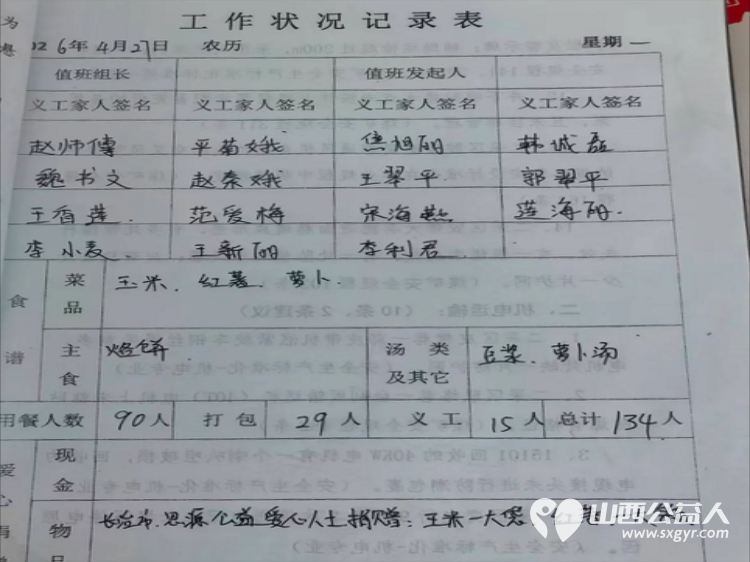 工作状况记录表
为
26年4月27日 农历 星期一
值班组长 值班发起人
义工家人签名 义工家人签名 义工家人签名 义工家人签名
赵师傅 平菊娥 焦旭丽 韩诚磊
魏书文 赵条娥 王翠平 郭翠平
王香莲 范爱梅 宋海勤 莲海丽
李小麦 王新丽 李利君
食谱 菜品 玉米、红薯、萝卜
主食 烙饼 汤类及其它 豆浆、萝卜汤
用餐人数 90人 打包 29人 义工 15人 总计 134人
爱心捐 现金
物品 长治市思源公益爱心人士捐赠：玉米一大袋
山西公益人
www.sxgyr.com